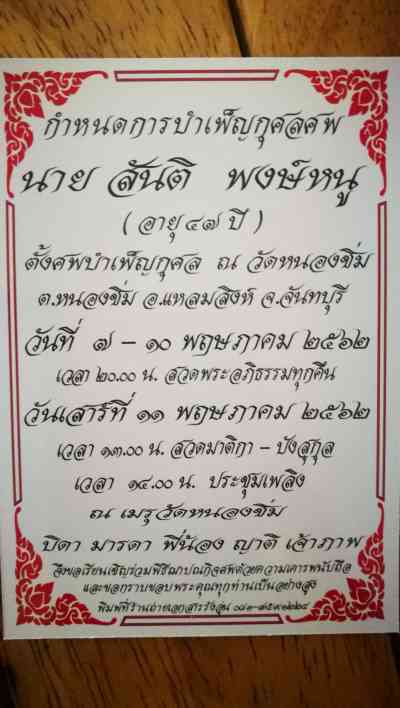 กำหนดการบำเพ็ญกุศลศพ
นาย สันติ พงษ์หนู
( อายุ ๔๗ ปี )
ตั้งศพบำเพ็ญกุศล ณ วัดหนองชิ่ม
ต.หนองชิ่ม อ.แหลมสิงห์ จ.จันทบุรี
วันที่ ๗ - ๑๐ พฤษภาคม ๒๕๖๒
เวลา ๒๐.๐๐ น. สวดพระอภิธรรมทุกคืน
วันเสาร์ที่ ๑๑ พฤษภาคม ๒๕๖๒
เวลา ๑๓.๐๐ น. สวดมาติกา - บังสุกุล
เวลา ๑๔.๐๐ น. ประชุมเพลิง
ณ เมรุวัดหนองชิ่ม
บิดา มารดา พี่น้อง ญาติ เจ้าภาพ
จึงขอเรียนเชิญร่วมพิธีฌาปณกิจศพด้วยความเคารพนับถือ
และขอกราบขอบพระคุณทุกท่านเป็นอย่างสูง
พิมพ์ที่ร้านถ่ายเอกสาร